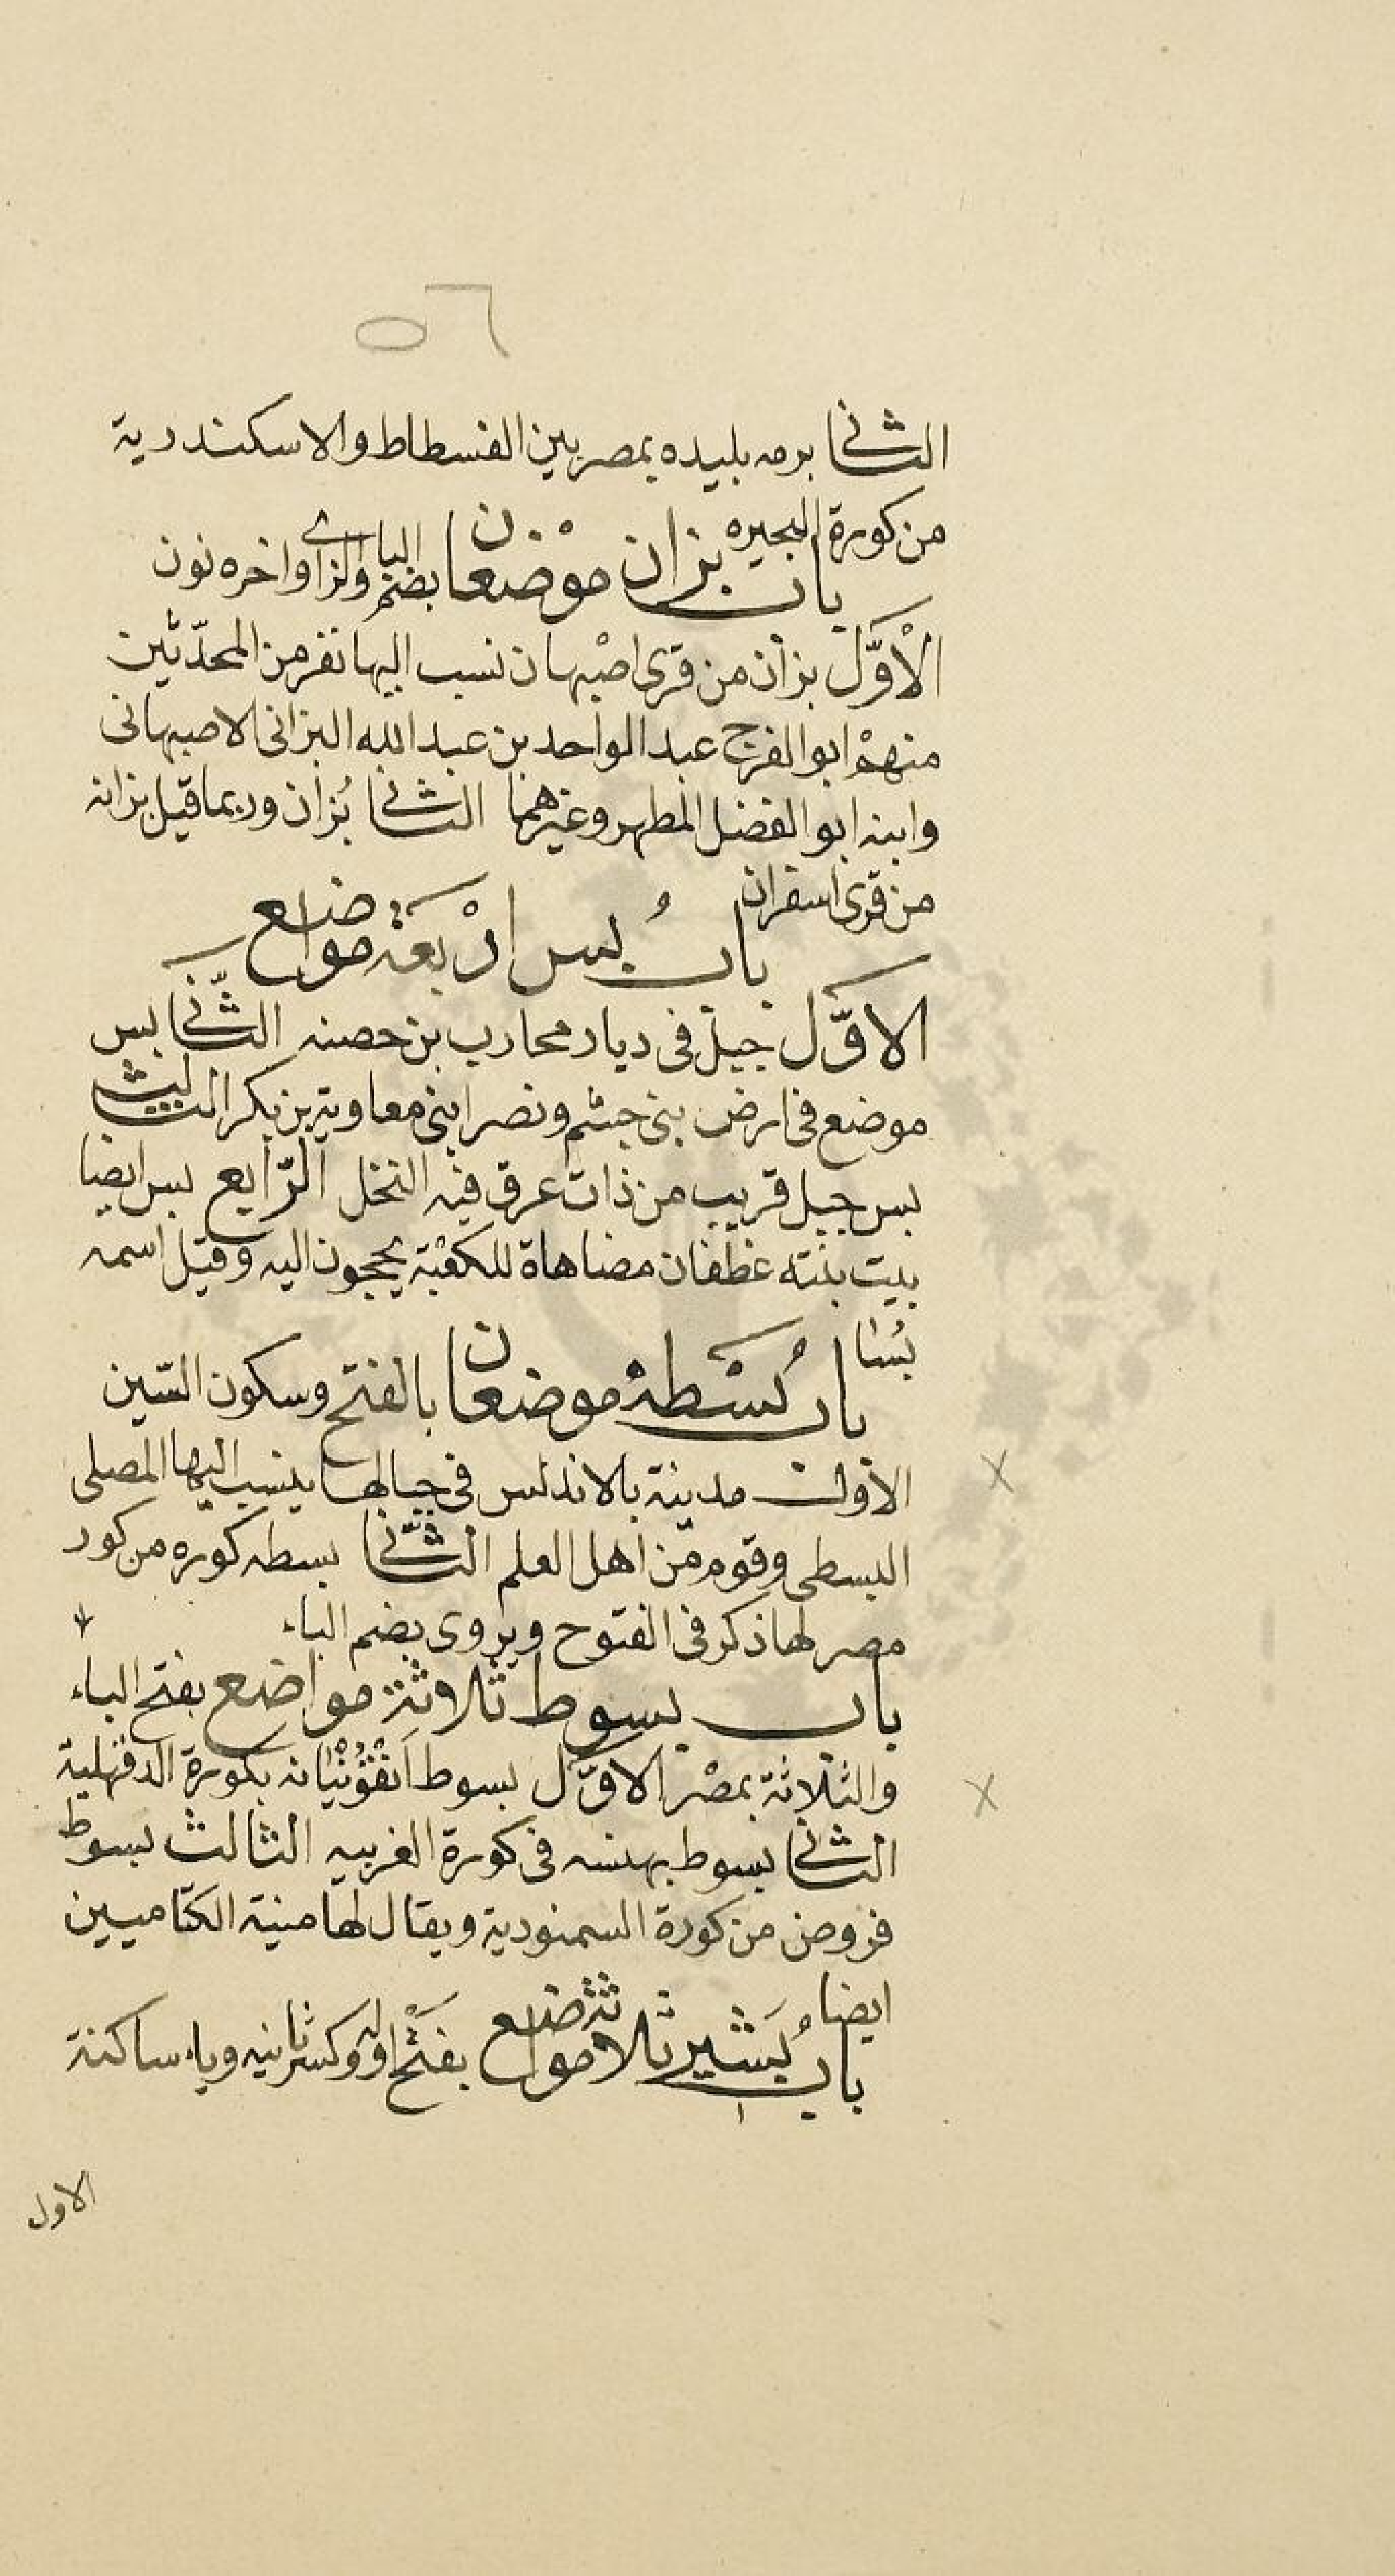 ٥٦
الثاني برمه بليده بمصر بين الفسطاط والاسكندرية
من كورة البحيره
باب بزان موْضعان بضم الباء والزاي واخره نون
الْاوَّل بزان من قرى اصْبهان نسب اليها نفر من المحدّثين
منهمْ ابو الفرج عبد الواحد بن عبد الله البزانى الاصبهانى
وابنه ابو الفضل المطهر وغيرهما الثاني بُزان وربما قيل بزانه
من قرى اسفران
بابُ بس ارْبعَة مواضع
الاوَّل جبل فى ديار محارب بن حصنه الثّاني بس
موضع فى ارض بنى جشم ونصر ابنى معاوية بن بكر الثالث
بس جبل قريب من ذات عرق فيه النخل الرّابع بس ايضا
بيت بنته غطفان مضاهاة للكعْبة يحجون اليه وقيل اسمه
بُسَا
بابُ بَسْطة موضعان بالفتح وسكون السّين
الاول مدينة بالاندلس فى جبالها ينسب اليها المصلى
البسطى وقوم مّن اهل العلم الثّاني بسطه كوره من كور
مصر لها ذكر فى الفتوح ويروى بضم الباء
باب بسوط ثلاثة مواضع بفتح الباء
والثلاثة بمصْر الاوَّل بسوط انْقُوْنْيانه بكورة الدقهلية
الثاني بسوط بهنسه فى كورة الغربيه الثالث بسوط
قروص من كورة السمنودية ويقال لها منية الكتاميين
ايضا
بابُ بَشير ثلاثة مواضع بفتْح اوله وكسر ثانيه وياء ساكنة
الاول